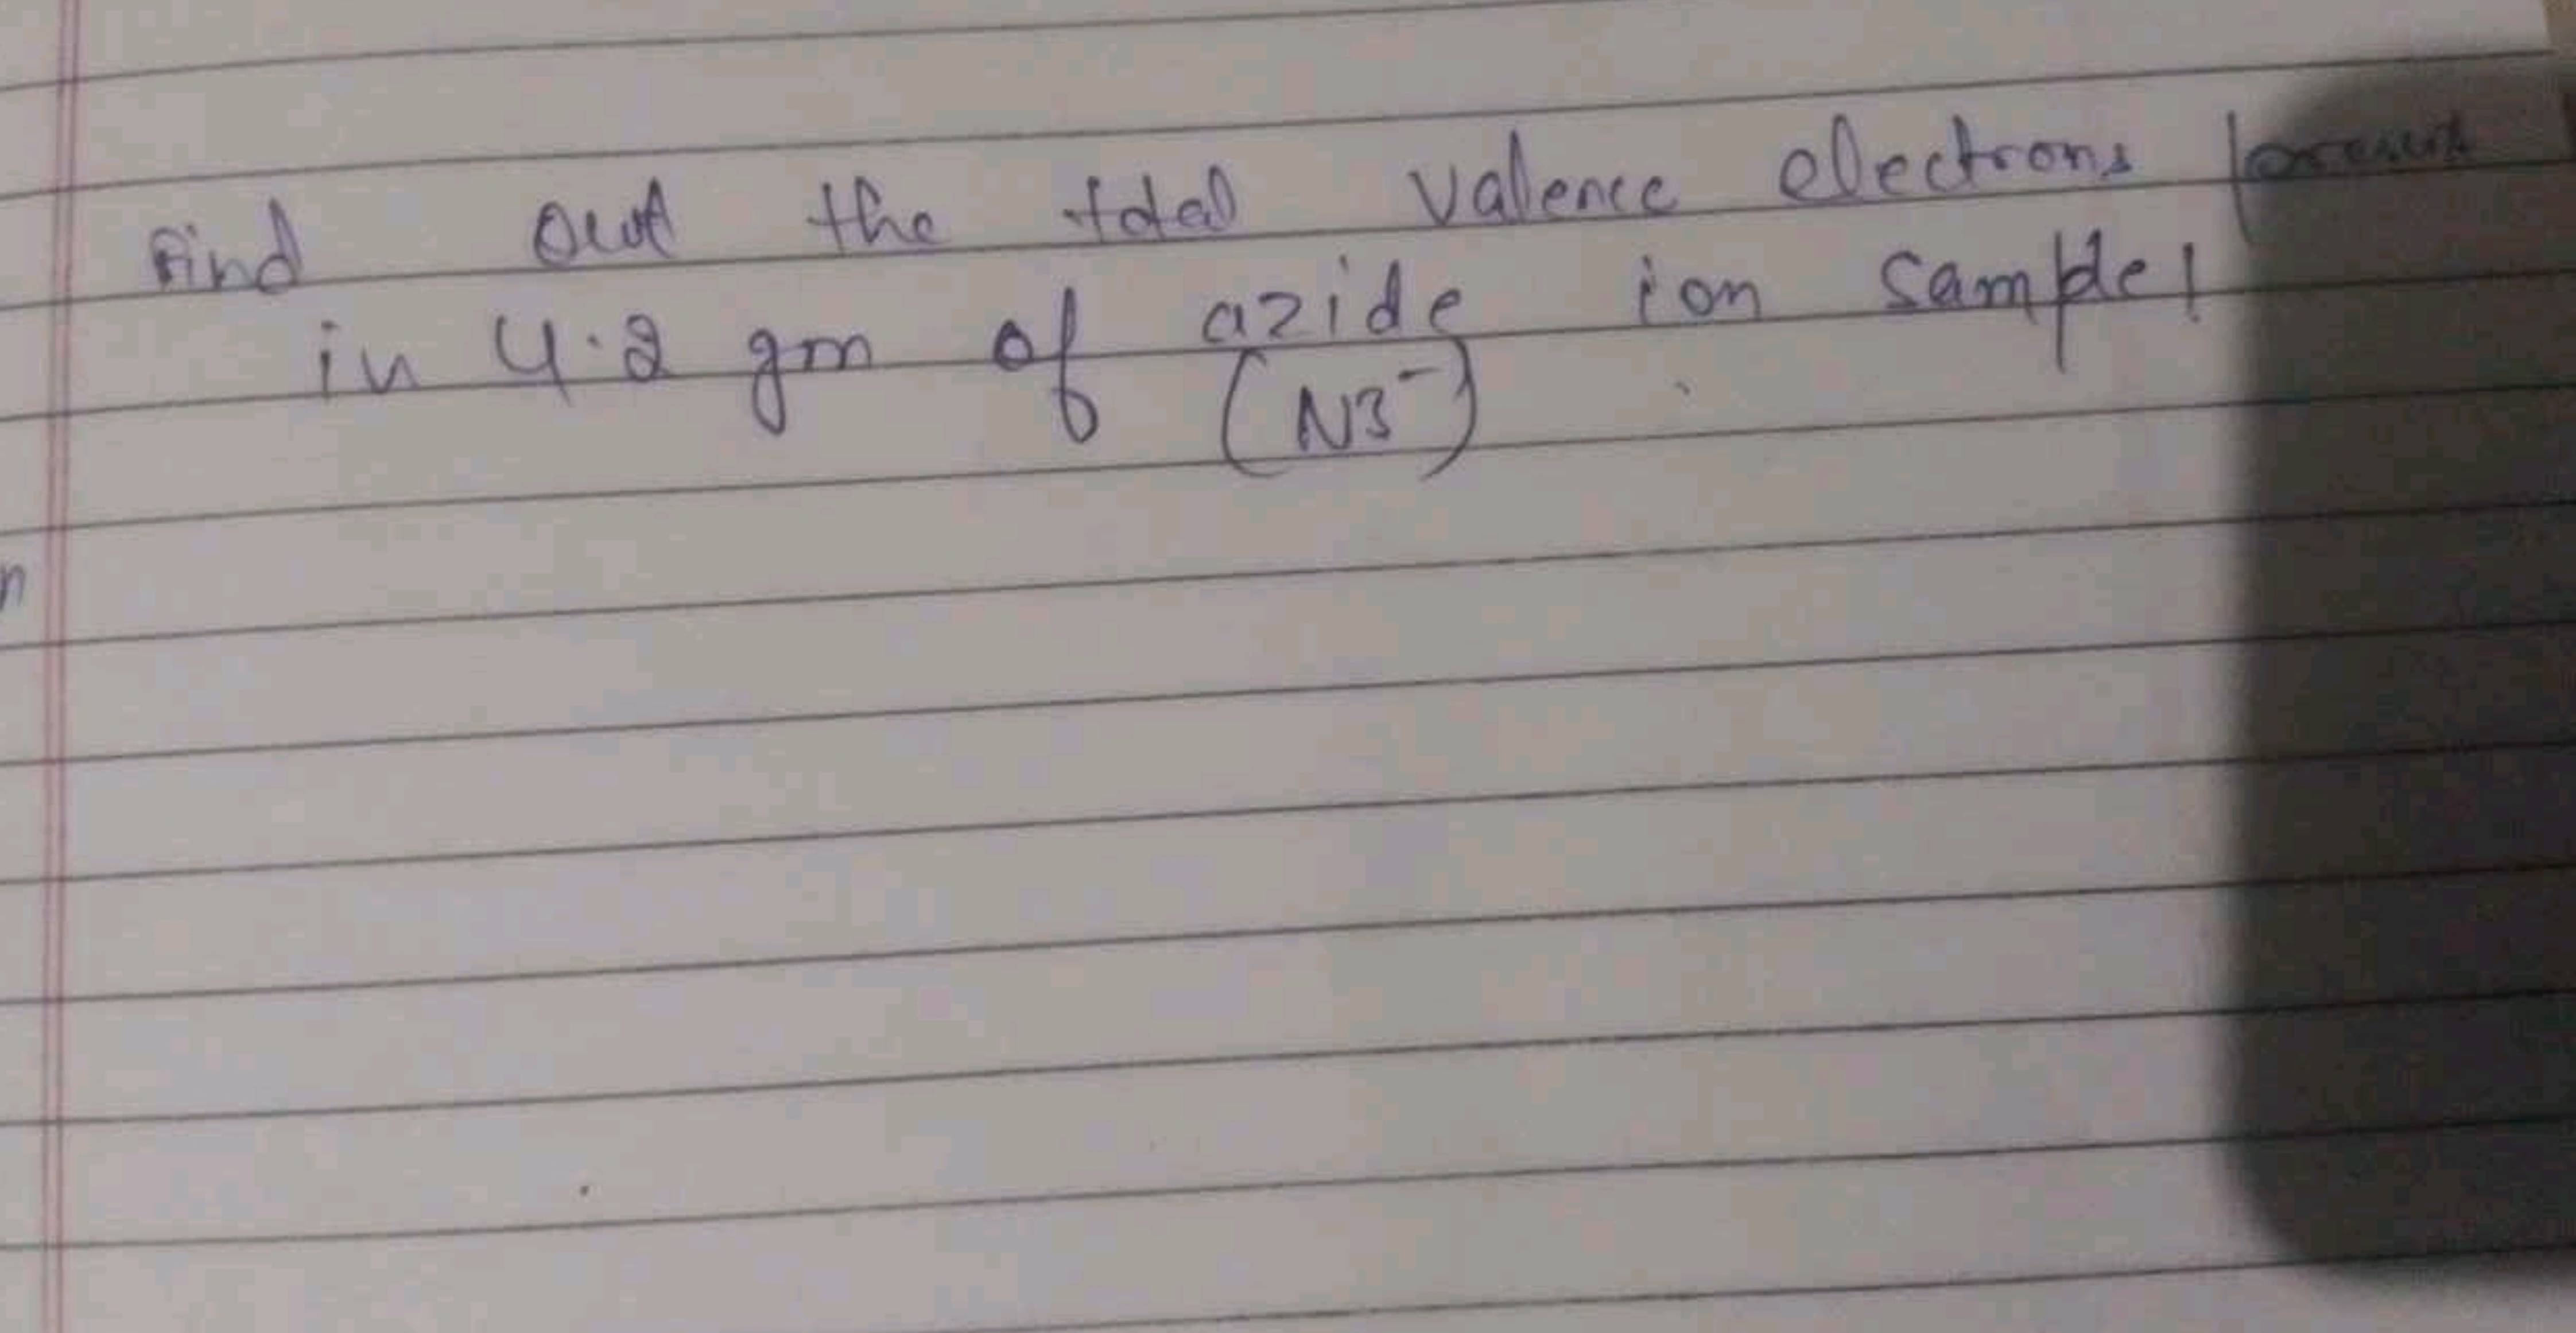 Find out the total valence electrons present
in 4.2 gm of azide ion sample!
(N3⁻)
n